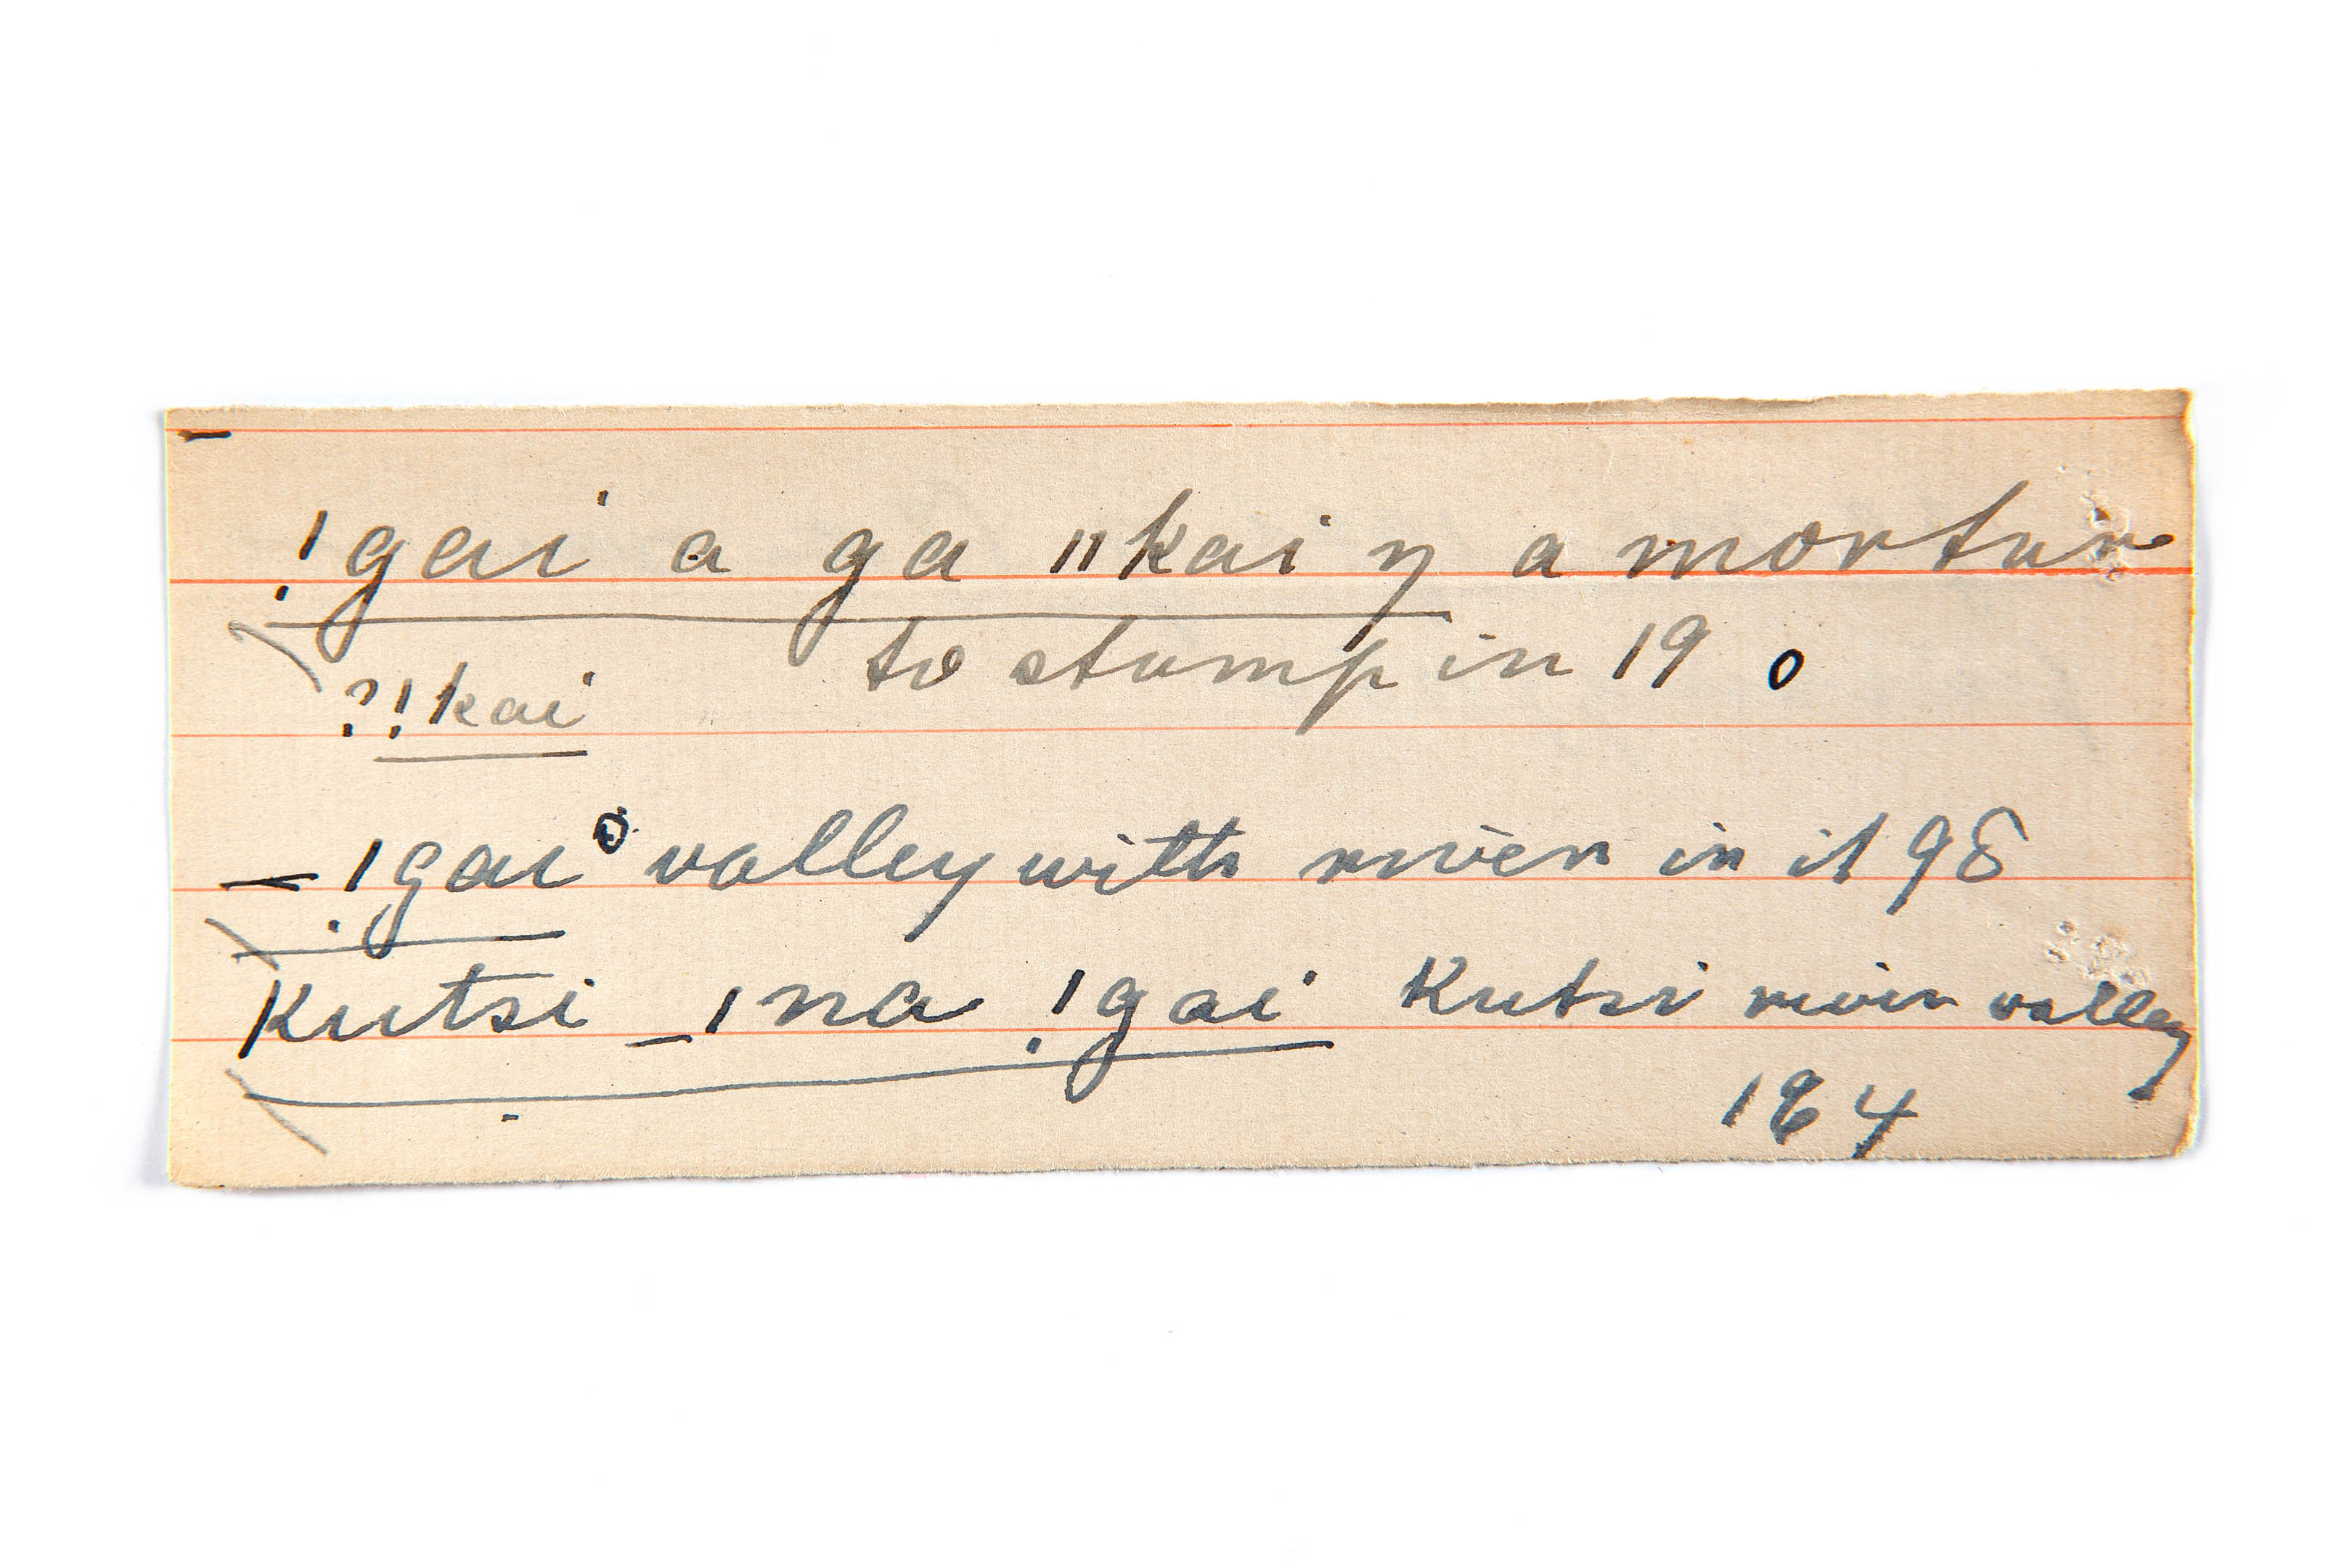 !gai a ga ǁkai ŋ a mortar
to stamp in 19 o
?!kai
– !gai° valley with river in it 98
Kutsi _ǀna !gai Kutsi river valley
164